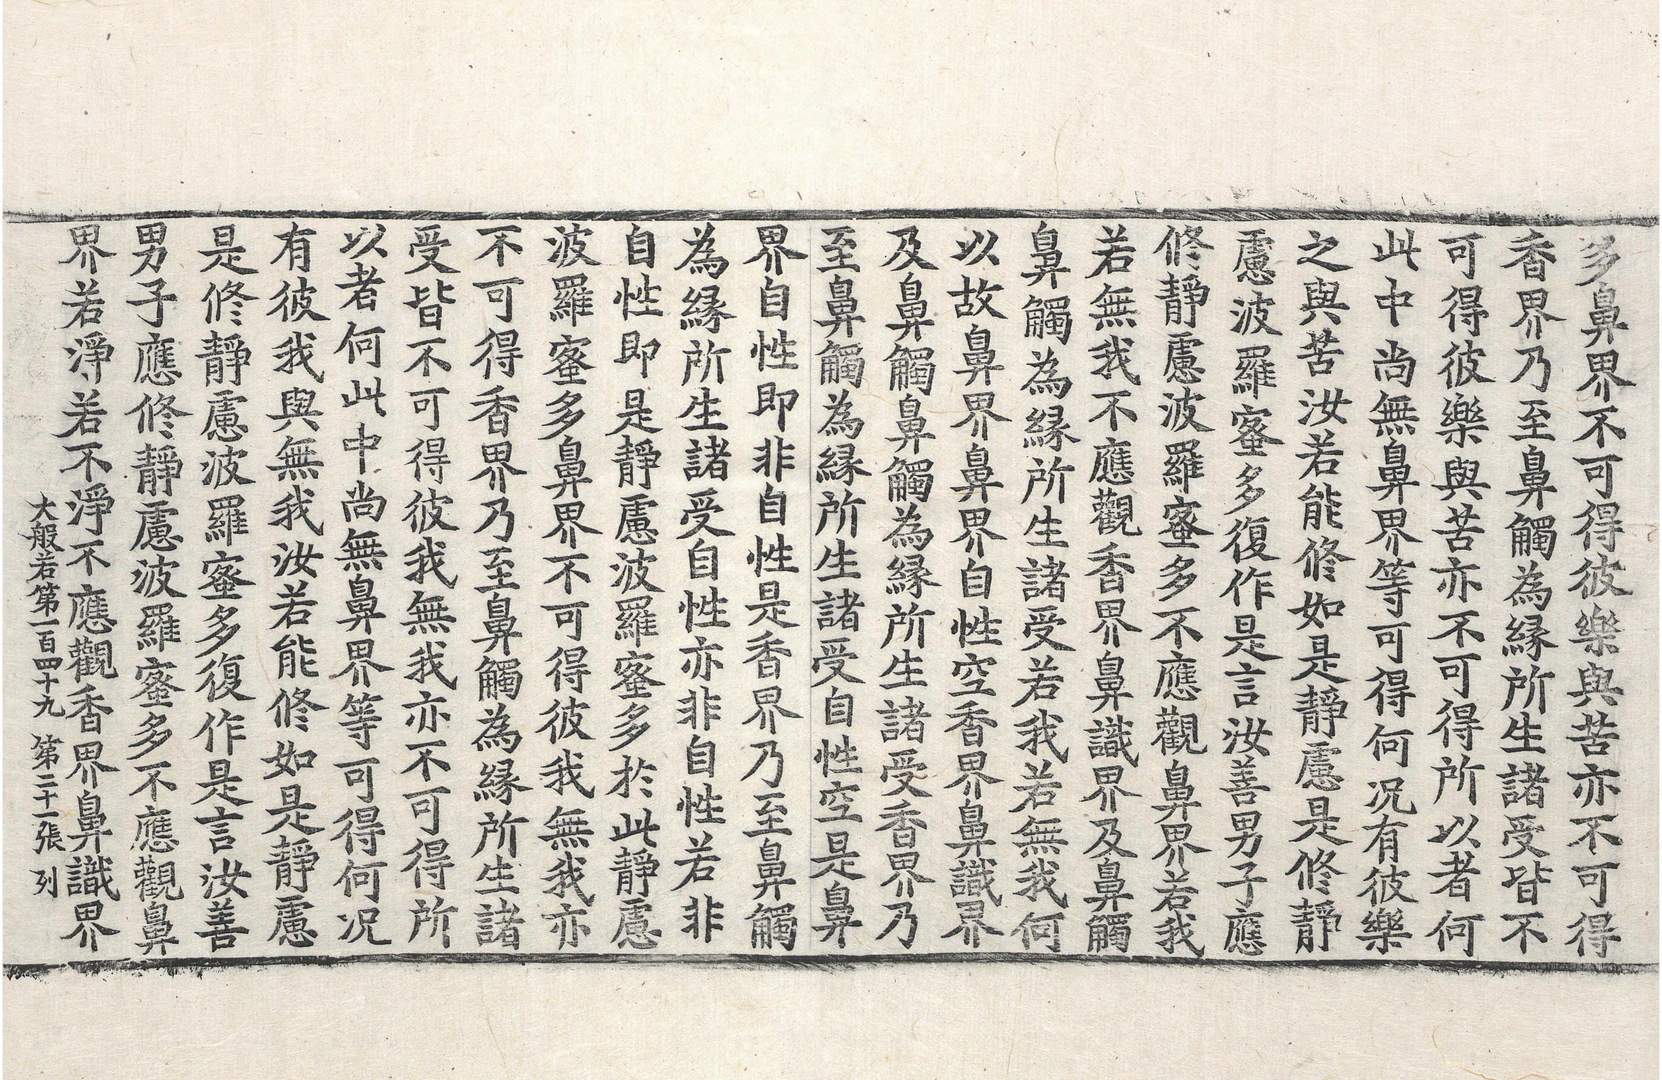 多鼻界不可得彼樂與苦亦不可得
香界乃至鼻觸為緣所生諸受皆不
可得彼樂與苦亦不可得所以者何
此中尚無鼻界等可得何况有彼樂
之與苦汝若能修如是靜慮是修靜
慮波羅蜜多復作是言汝善男子應
修靜慮波羅蜜多不應觀鼻界若我
若無我不應觀香界鼻識界及鼻觸
鼻觸為緣所生諸受若我若無我何
以故鼻界鼻界自性空香界鼻識界
及鼻觸鼻觸為緣所生諸受香界乃
至鼻觸為緣所生諸受自性空是鼻
界自性即非自性是香界乃至鼻觸
為緣所生諸受自性亦非自性若非
自性即是靜慮波羅蜜多於此靜慮
波羅蜜多鼻界不可得彼我無我亦
不可得香界乃至鼻觸為緣所生諸
受皆不可得彼我無我亦不可得所
以者何此中尚無鼻界等可得何况
有彼我與無我汝若能修如是靜慮
是修靜慮波羅蜜多復作是言汝善
男子應修靜慮波羅蜜多不應觀鼻
界若淨若不淨不應觀香界鼻識界
大般若第一百四十九 第二十一張 列